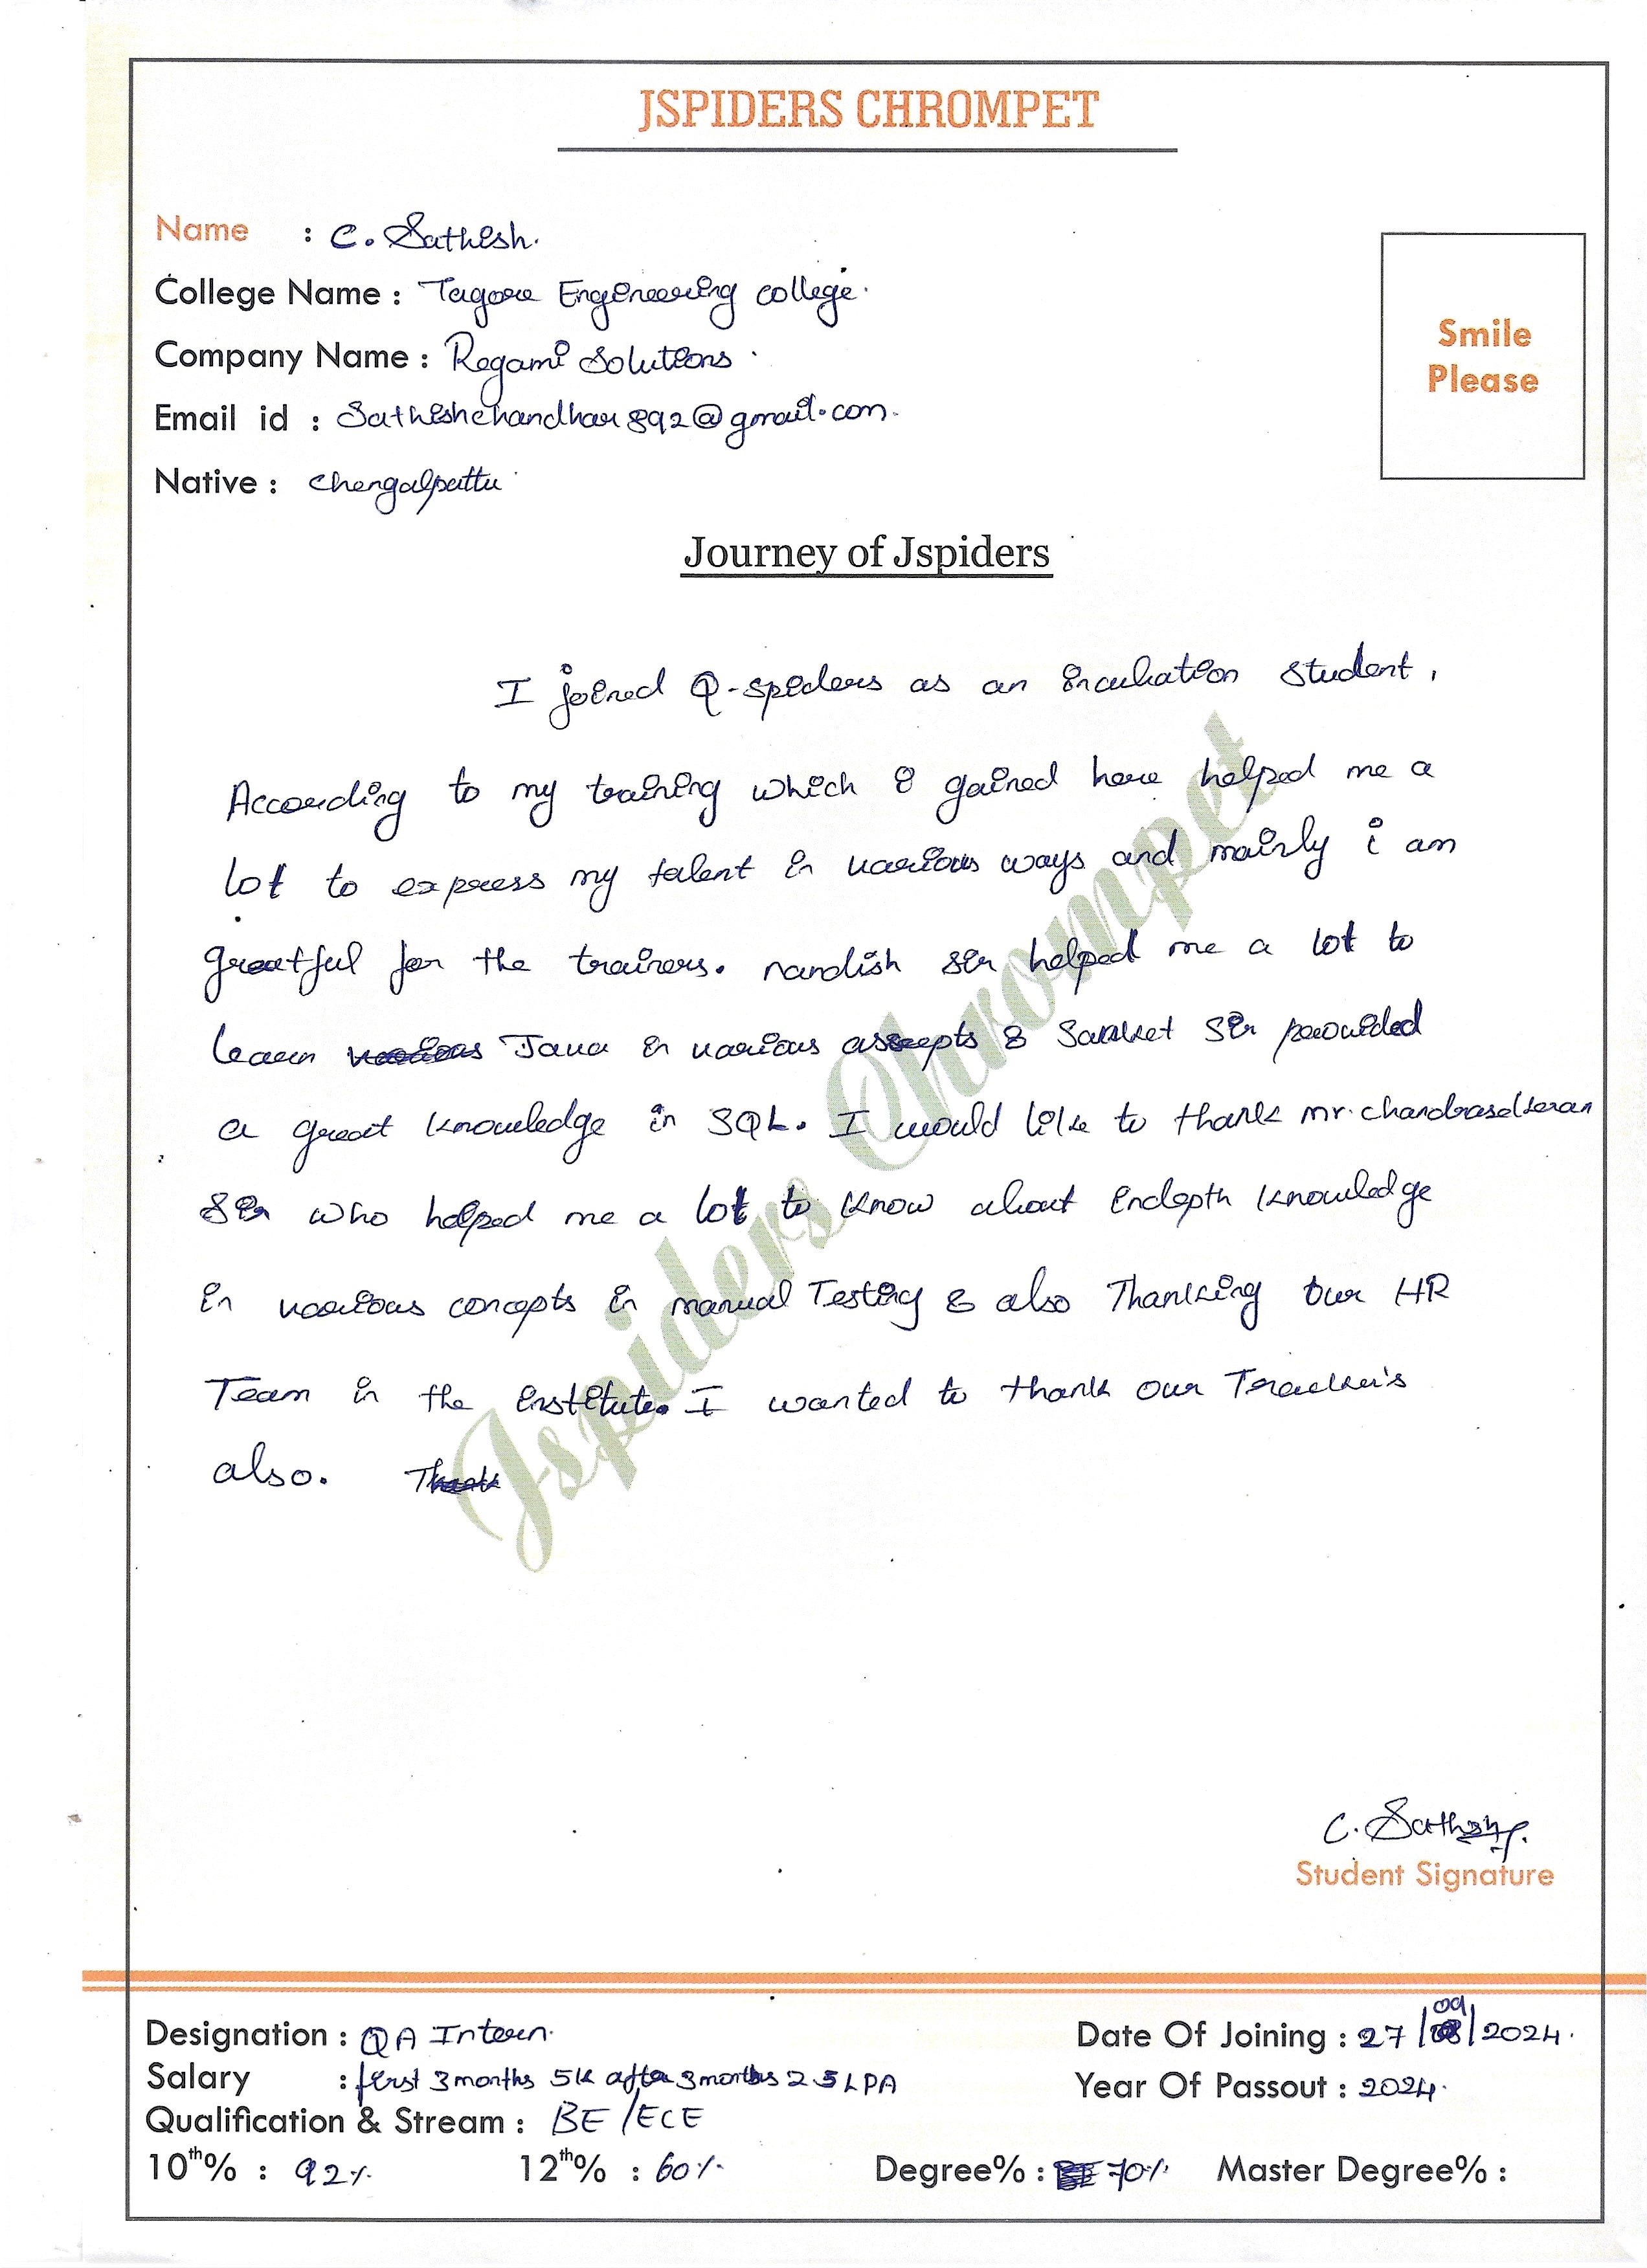 JSPIDERS CHROMPET
Name : C. Sathish.
College Name : Tagore Engineering college.
Company Name : Regami Solutions.
Email id : Sathishchandhar892@gmail.com.
Native : Chengalpattu.
Smile
Please
Journey of Jspiders
I joined Q-spiders as an incubation student,
According to my training which i gained here helped me a
lot to express my talent in various ways and mainly i am
greatful for the trainers. nandish sir helped me a lot to
learn Java in various ascepts & Sanket Sir provided
a great knowledge in SQL. I would like to thank mr. chandrasekaran
sir who helped me a lot to know about indepth knowledge
in various concepts in manual Testing & also Thanking our HR
Team in the institute. I wanted to thank our Tracker's
also.
Jspiders Chrompet
C. Sathish.
Student Signature
Designation : QA Intern.
Date Of Joining : 27/09/2024.
Salary : first 3 months 5k after 3 months 2.5 LPA
Year Of Passout : 2024.
Qualification & Stream : BE/ECE
10th% : 92%. 12th% : 60%. Degree% : 70%. Master Degree% :